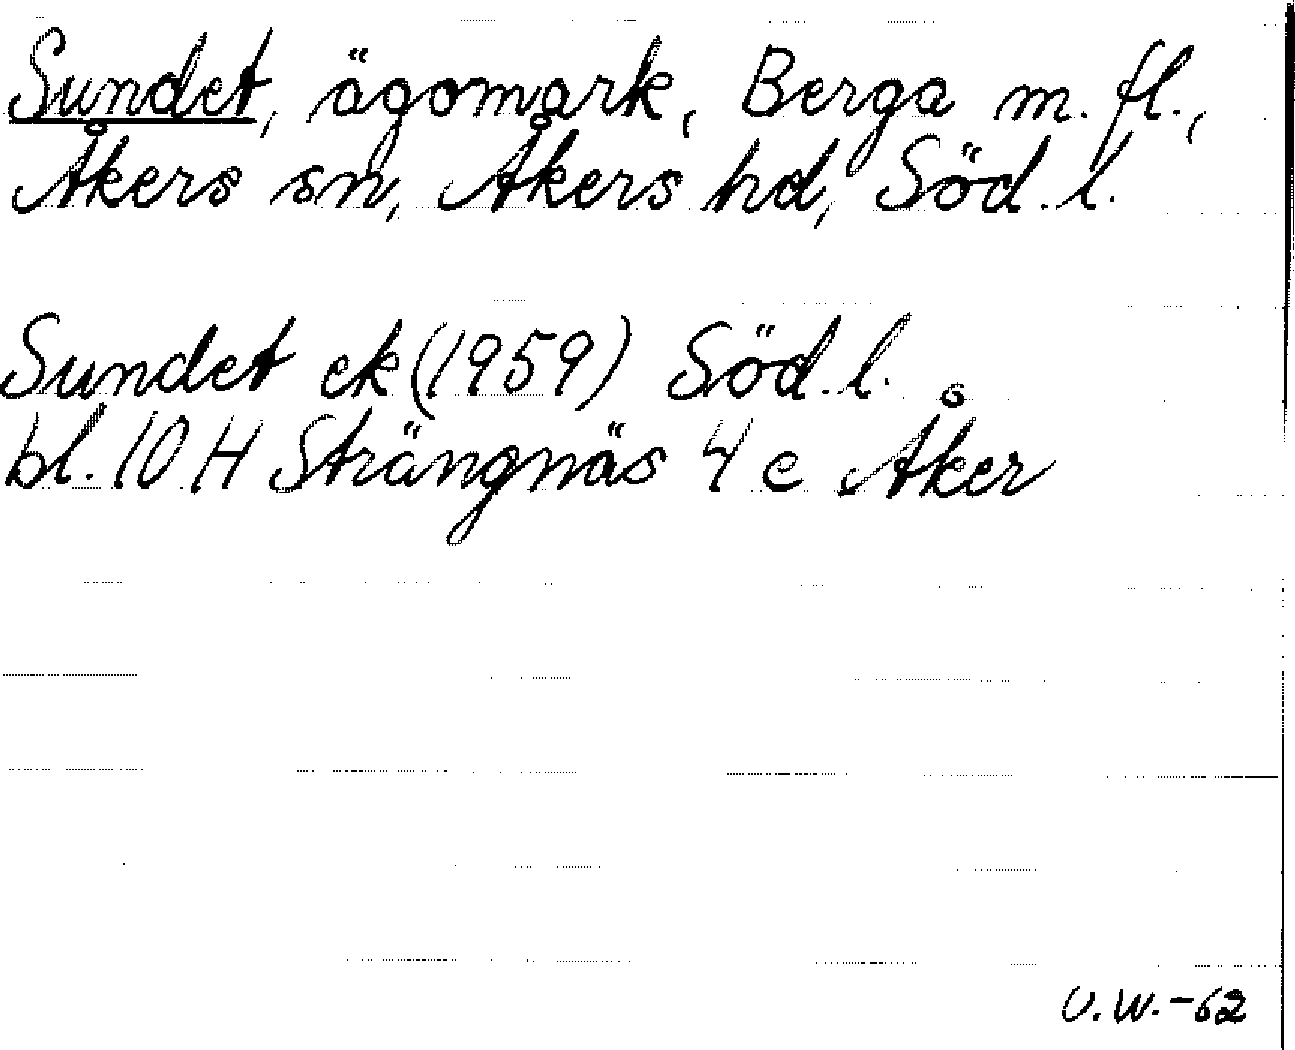 Sundet, ägomark, Berga m. fl.,
Åkers sn, Åkers hd, Söd. l.
Sundet ek (1959) Söd. l.
bl. 10 H Strängnäs 4 c Åker
U.W.-62